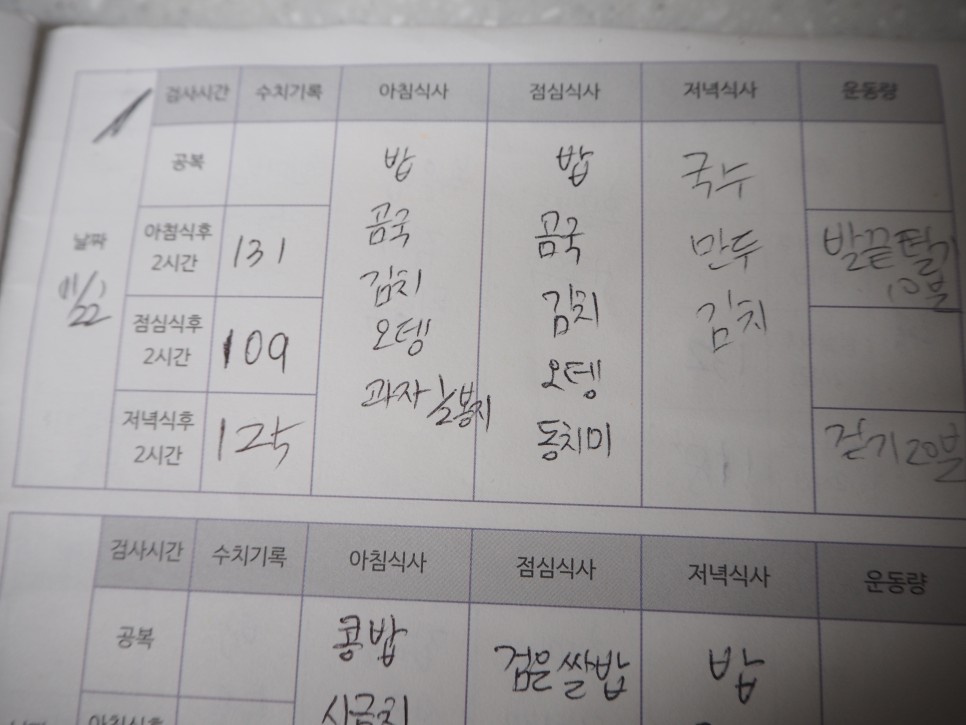 검사시간 수치기록 아침식사 점심식사 저녁식사 운동량
공복 밥 밥 국수
날짜 11/22
아침식후 2시간 131 곰국 곰국 만두 발끝털기 10분
김치 김치 김치
점심식후 2시간 109 오뎅 오뎅
과자 봉지
저녁식후 2시간 125 동치미 걷기 20분
검사시간 수치기록 아침식사 점심식사 저녁식사 운동량
공복 콩밥 검은쌀밥 밥
시금치
아침식후